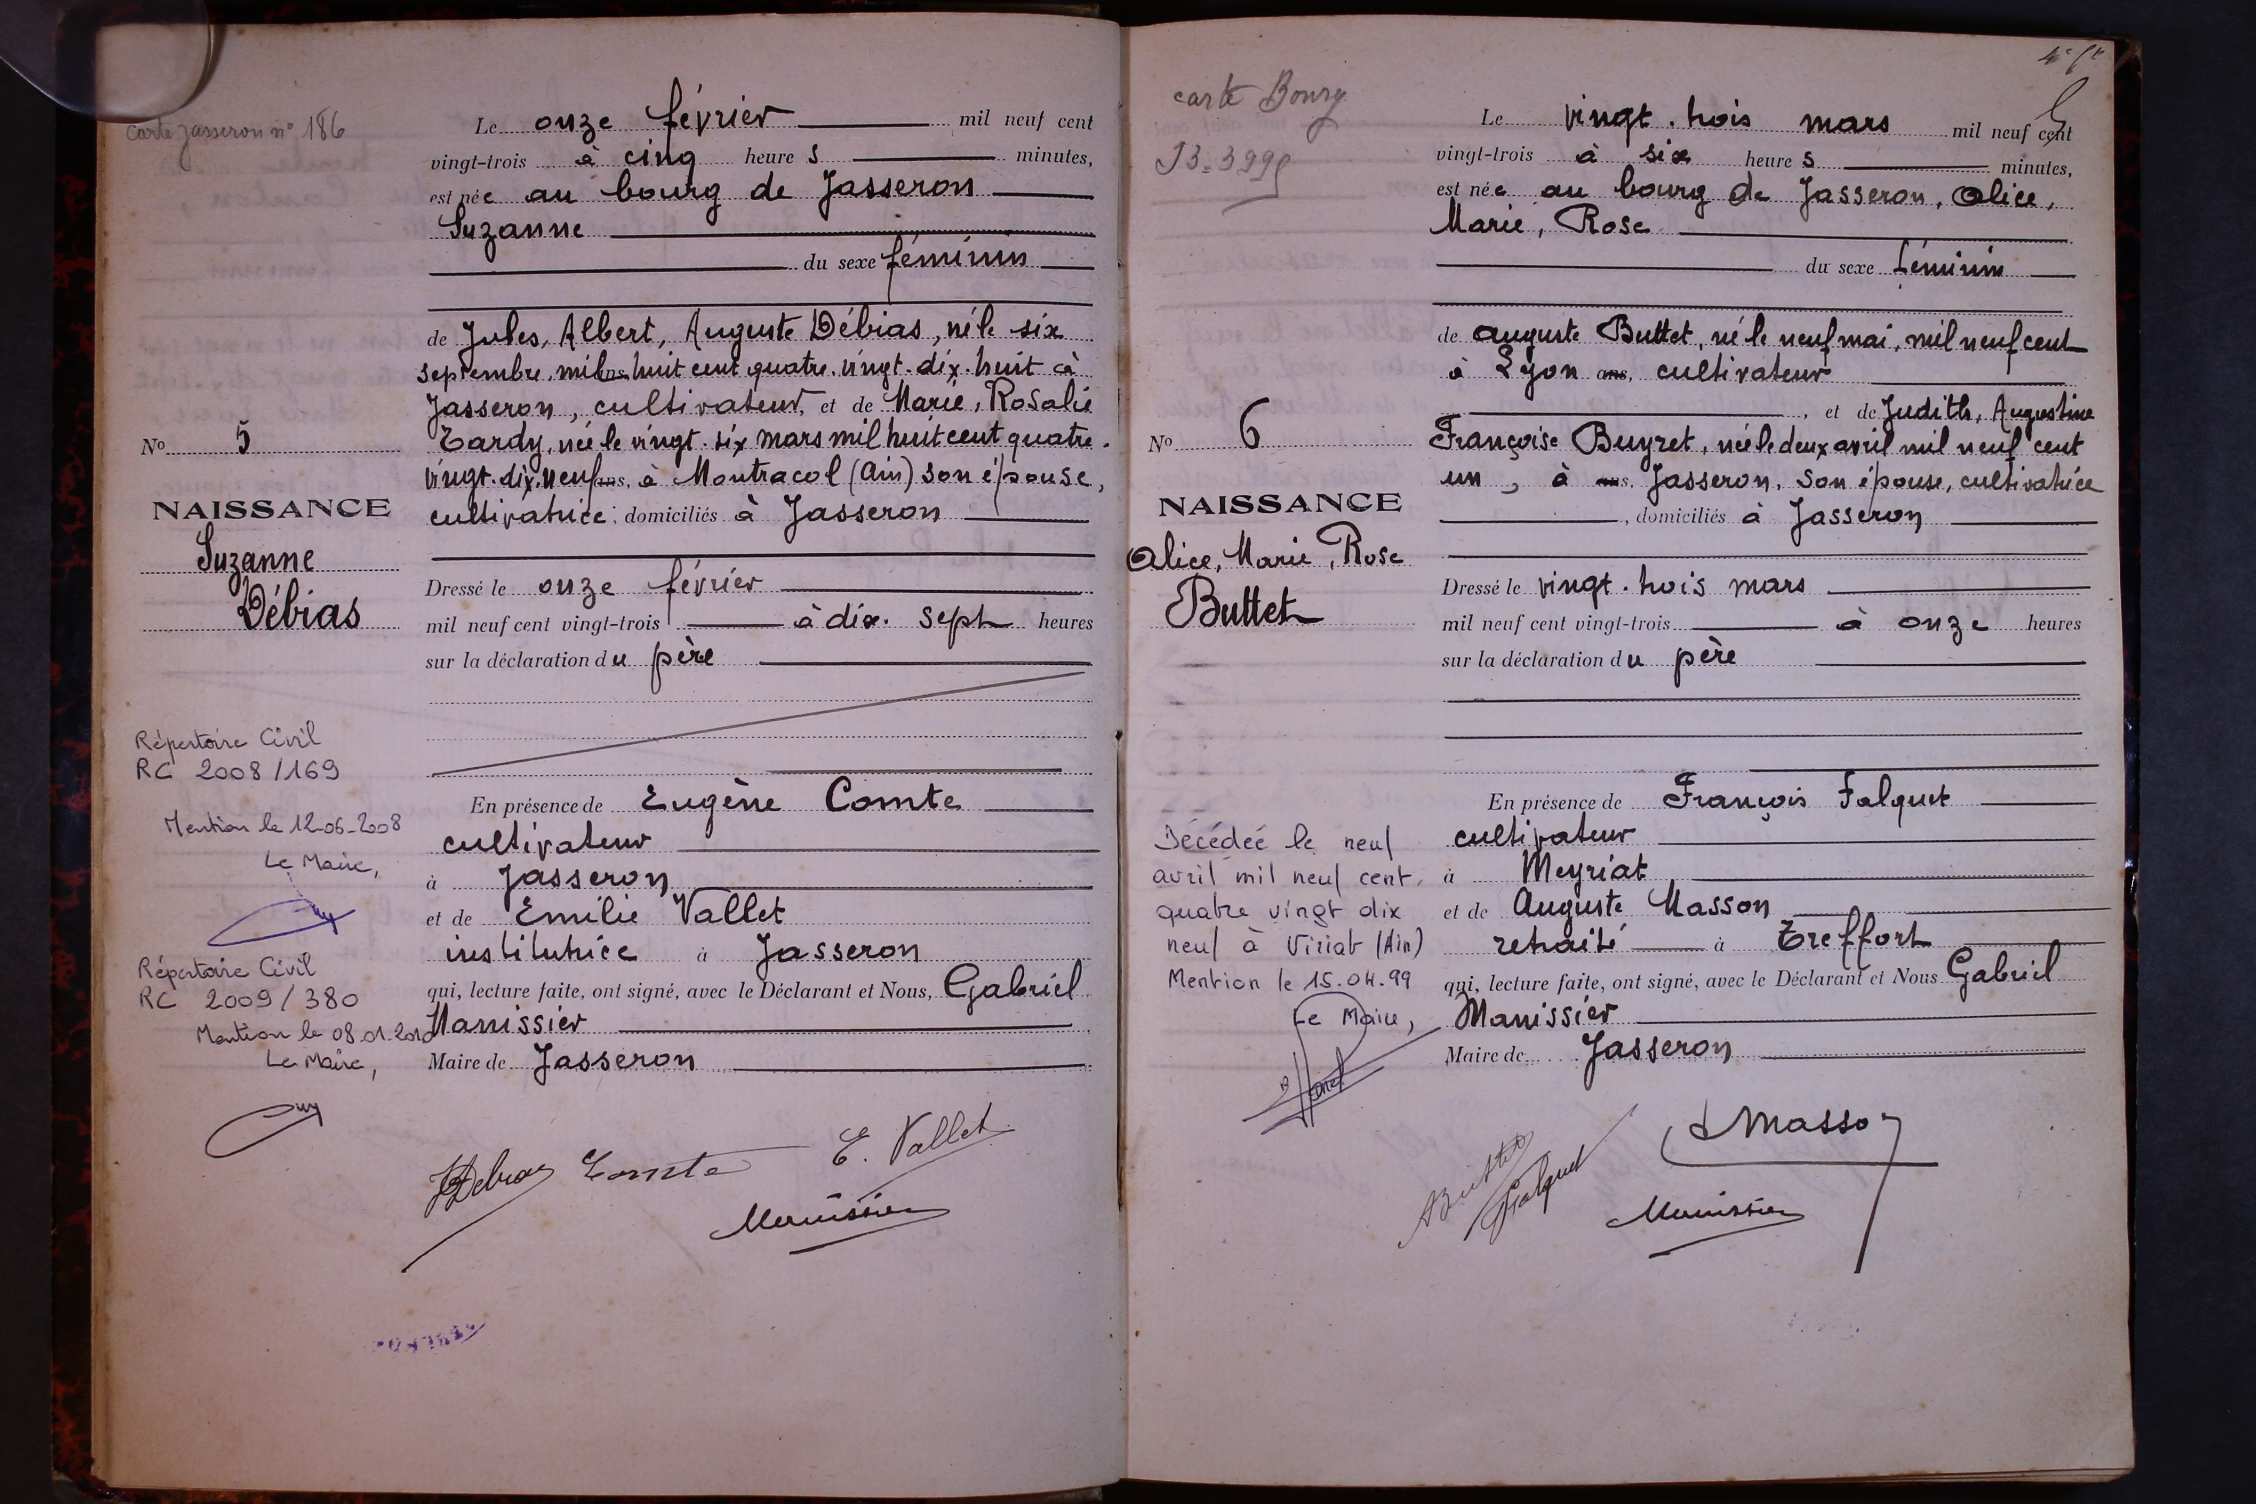 carte Jasseron n° 186
Le onze février mil neuf cent
vingt-trois à cinq heures minutes,
est née au bourg de Jasseron
Suzanne
du sexe féminin
de Jules, Albert, Auguste Débias, né le six
septembre, mil ans huit cent quatre. vingt. dix. huit à
Jasseron, cultivateur, et de Marie, Rosalie
Tardy, née le vingt. six mars mil huit cent quatre.
vingt. dix. neuf ans, à Montracol (Ain) son épouse,
cultivatrice, domiciliés à Jasseron
N° 5
NAISSANCE
Suzanne
Débias
Dressé le onze février
mil neuf cent vingt-trois à dix. sept heures
sur la déclaration du père
Répertoire Civil
RC 2008/169
Mention le 12-06-2008
Le Maire,
Répertoire Civil
RC 2009/380
Mention le 08.01.2010
Le Maire,
En présence de Eugène Comte
cultivateur
à Jasseron
et de Emilie Vallet
institutrice à Jasseron
qui, lecture faite, ont signé, avec le Déclarant et Nous, Gabriel
Manissier
Maire de Jasseron
Debias Comte E. Vallet
Manissier
carte Bourg
Le vingt. trois mars mil neuf cent
vingt-trois à six heures minutes,
est née au bourg de Jasseron, Alice,
Marie, Rose
du sexe féminin
de Auguste Buttet, né le neuf mai, mil neuf cent
à Lyon ans, cultivateur
, et de Judith, Augustine
Françoise Buyret, née le deux avril mil neuf cent
un, à ans, Jasseron, son épouse, cultivatrice
, domiciliés à Jasseron
N° 6
NAISSANCE
Alice, Marie, Rose
Buttet
Dressé le vingt. trois mars
mil neuf cent vingt-trois à onze heures
sur la déclaration du père
Décédée le neuf
avril mil neuf cent
quatre vingt dix
neuf à Viriat (Ain)
Mention le 15.04.99
Le Maire,
En présence de François Falquet
cultivateur
à Meyriat
et de Auguste Masson
retraité à Treffort
qui, lecture faite, ont signé, avec le Déclarant et Nous Gabriel
Manissier
Maire de Jasseron
Masson
Buttet
Falquet
Manissier